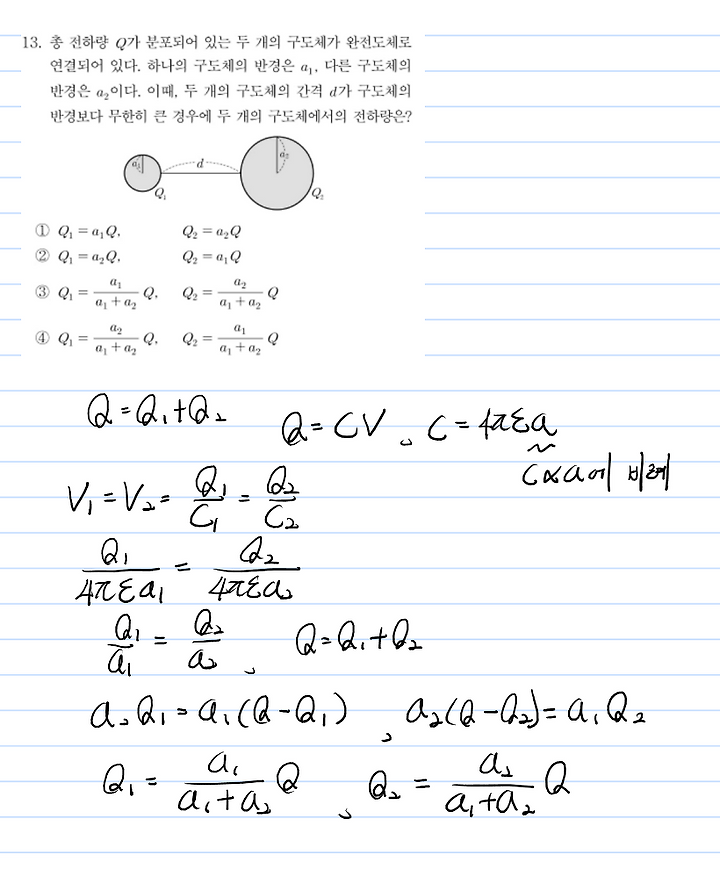 13. 총 전하량 Q가 분포되어 있는 두 개의 구도체가 완전도체로
연결되어 있다. 하나의 구도체의 반경은 a₁, 다른 구도체의
반경은 a₂이다. 이때, 두 개의 구도체의 간격 d가 구도체의
반경보다 무한히 큰 경우에 두 개의 구도체에서의 전하량은?
a₁ d a₂
Q₁ Q₂
① Q₁ = a₁Q, Q₂ = a₂Q
② Q₁ = a₂Q, Q₂ = a₁Q
③ Q₁ = a₁/(a₁+a₂) Q, Q₂ = a₂/(a₁+a₂) Q
④ Q₁ = a₂/(a₁+a₂) Q, Q₂ = a₁/(a₁+a₂) Q
Q = Q₁+Q₂ Q = CV, C = 4πεa
C∝a에 비례
V₁ = V₂ = Q₁/C₁ = Q₂/C₂
Q₁/4πεa₁ = Q₂/4πεa₂
Q₁/a₁ = Q₂/a₂, Q = Q₁+Q₂
a₂Q₁ = a₁(Q-Q₁), a₂(Q-Q₂) = a₁Q₂
Q₁ = a₁/(a₁+a₂) Q, Q₂ = a₂/(a₁+a₂) Q